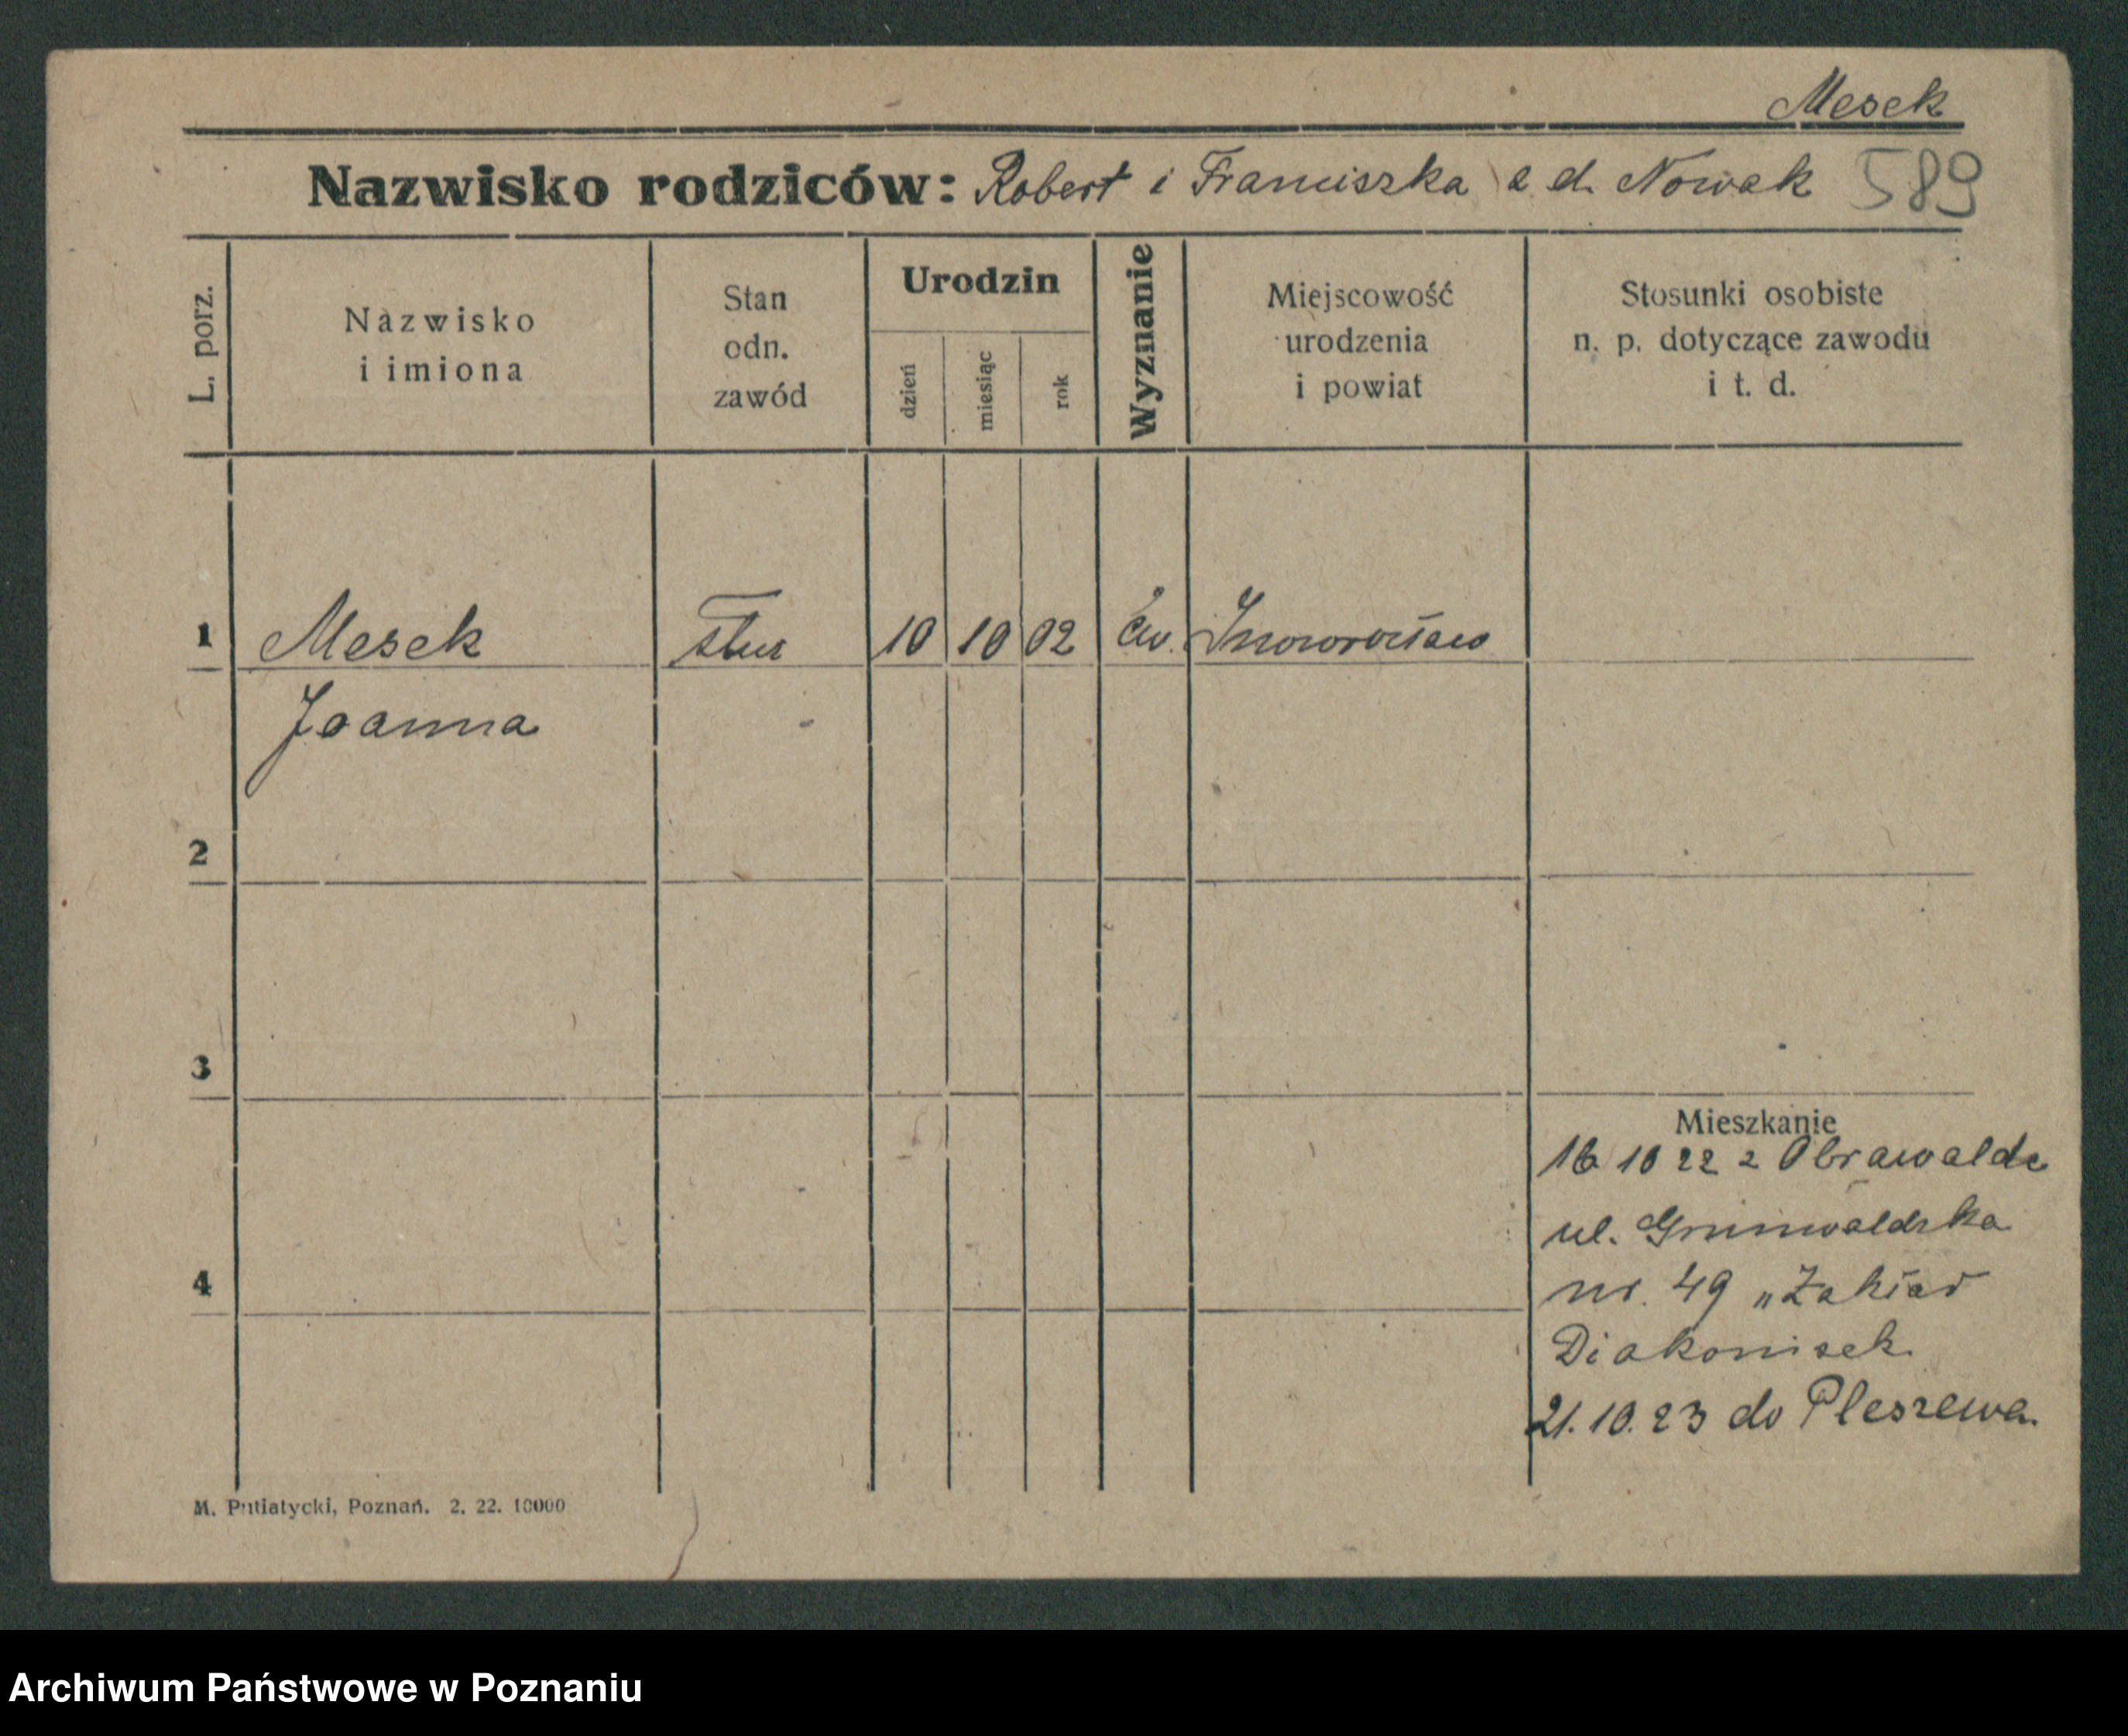 Mesek
Nazwisko rodziców: Robert i Franciszka z d. Nowak 589
L. porz.
Nazwisko
i imiona
Stan
odn.
zawód
Urodzin
dzień
miesiąc
rok
Wyznanie
Miejscowość
urodzenia
i powiat
Stosunki osobiste
n. p. dotyczące zawodu
i t. d.
1 Mesek służ 10 10 02 Ew. Inowrocław
Joanna
2
3
4
Mieszkanie
16 10 22 z Obrawalde
ul. Grunwaldzka
nr. 49 „Zakład
Diakonisek
21. 10. 23 do Pleszewa.
M. Putiatycki, Poznań. 2. 22. 10000
Archiwum Państwowe w Poznaniu